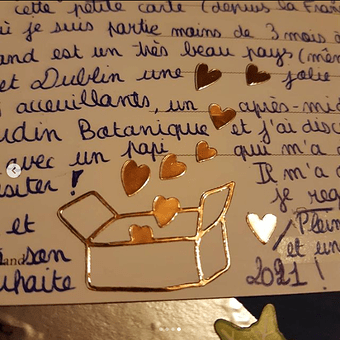 cette petite carte (depuis la Fran
ai je suis partie moins de 3 mois à
and est un très beau pays (mêm
et Dublin une jolie
accueillants, un après-mid
udin Botanique et j'ai disc
avec un papi qui m'a
siter ! Il m'a
je reg
et Plein
son et un
uhaite 2021 !